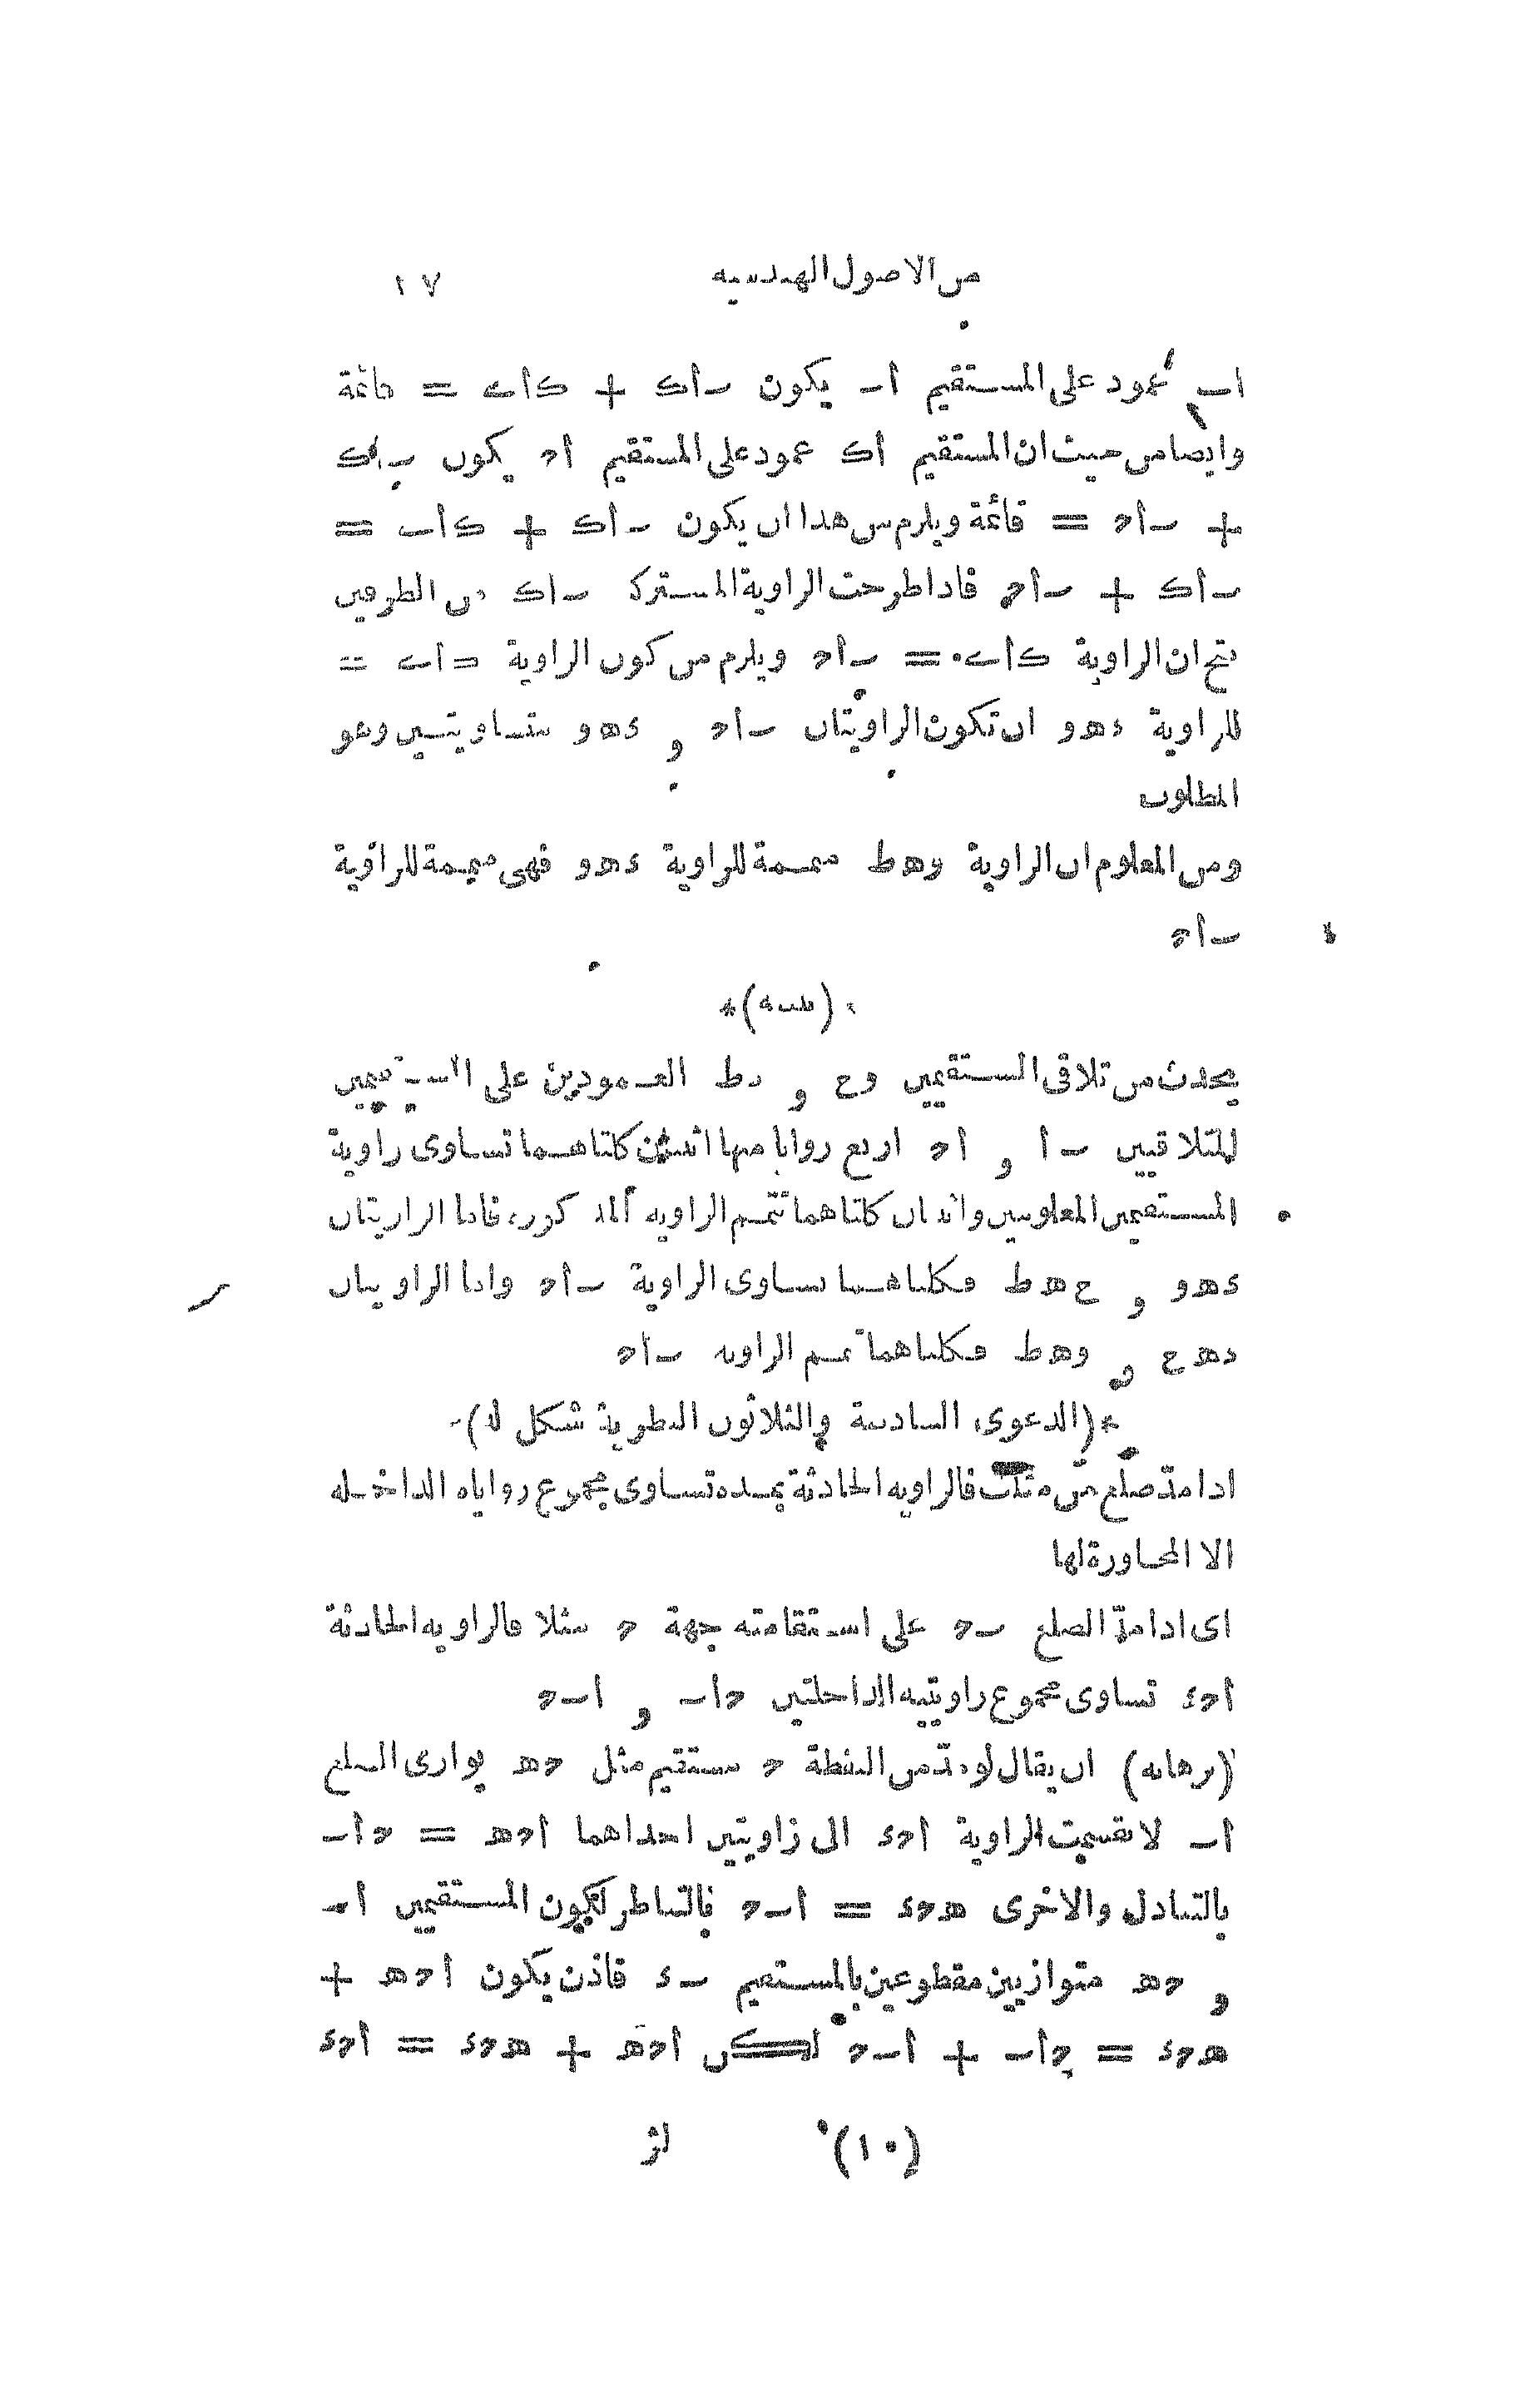 من الاصول الهندسيه ١٧
اٮ عمود على المستقيم اٮ يكون ٮاك + كاى = قائمة
وايضا من حيث ان المستقيم اك عمود على المستقيم اد يكون ٮاك
+ ٮاد = قائمة ويلزم من هذا ان يكون ٮاك + كاى =
ٮاك + ٮاد فاذا طرحت الزاوية المشتركة ٮاك من الطرفين
نتج ان الزاوية كاى = ٮاد ويلزم من كون الزاوية كاى =
للزاوية ءهو ان تكون الزاويتان ٮاد و ءهو متساويتين وهو
المطلوب
ومن المعلوم ان الزاوية وهط متممة للزاوية ءهو فهى متممة للزاوية
ٮاد
(تنبيه)*
يحدث من تلاقى المستقيمين وح و ںط العـمودين على المستقيمين
المتلاقيين ٮا و اد اربع زوايا منها اثنتان كلتاهـما تساوى زاوية
المستقيمين المعلومين واثنتان كلتاهما تتمم الزاويه المذكورة فاما الزاويتان
ءهو و حهط فكلتاهـما تساوى الزاوية ٮاد واما الزاويتان
ءهح و وهط فكلتاهما تتمم الزاوية ٮاد
*(الدعوى السادسة والثلاثون النظرية شكل لد)
اذا مدّ ضلع من مثلث فالزاويه الحادثة بمـده تساوى مجموع زواياه الداخـله
الا المجاورة لها
اى اذا مدّ الضلع ٮد على استقامته جهة د مثلا فالزاويه الحادثة
ادء تساوى مجموع زاويتيه الداخلتين داٮ و اٮد
(برهانه) ان يقال لو مدّ من النقطة د مستقيم مثل ده يوازى الضلع
اٮ لانقسمت الزاوية ادء الى زاويتين احداهما اده = داٮ
بالتبادل والاخرى هدء = اٮد فالتناظر لكون المستقيمين اٮ
و ده متوازيين مقطوعين بالمستقيم ٮء فاذن يكون اده +
هدء = داٮ + اٮد لكن اده + هدء = ادء
(١٠) لز